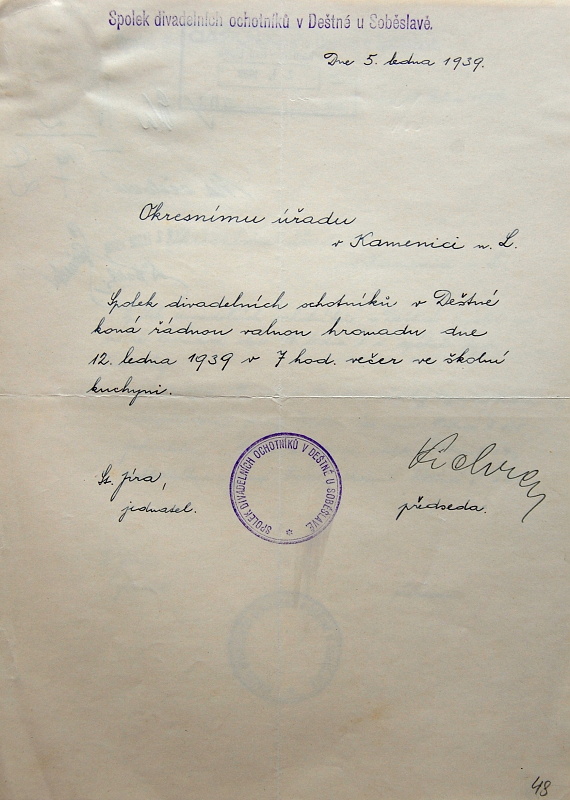 Spolek divadelních ochotníků v Deštné u Soběslavě.
Dne 5. ledna 1939.
Okresnímu úřadu
v Kamenici n. L.
Spolek divadelních ochotníků v Deštné
koná řádnou valnou hromadu dne
12. ledna 1939 v 7 hod. večer ve školní
kuchyni.
St. Jíra,
jednatel.
SPOLEK DIVADELNÍCH OCHOTNÍKŮ V DEŠTNÉ U SOBĚSLAVĚ. *
předseda.
48